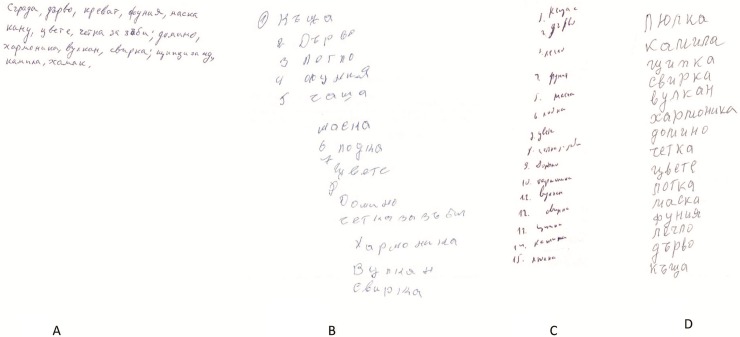 Сграда, дърво, креват, фуния, маска
кану, цвете, четка за зъби; домино,
хармоника, вулкан, свирка; щипци за
камила, хамак.
A
1 Къща
2 Дърво
3 Легло
4 Фуния
5 чаща
маска
6 лодка
7 Цвете
8
Домино
четка за зъби
Хармоника
Вулкан
Свирка
B
1.
2 дърво
4. фуния
5. маска
6. лодка
7. цвете
9. Домино
10. хармоника
свирка
13. щипка
14. камила
15.
C
Люлка
камила
щипка
свирка
вулкан
хармоника
домино
четка
цвете
лотка
маска
фуния
легло
дърво
къща
D